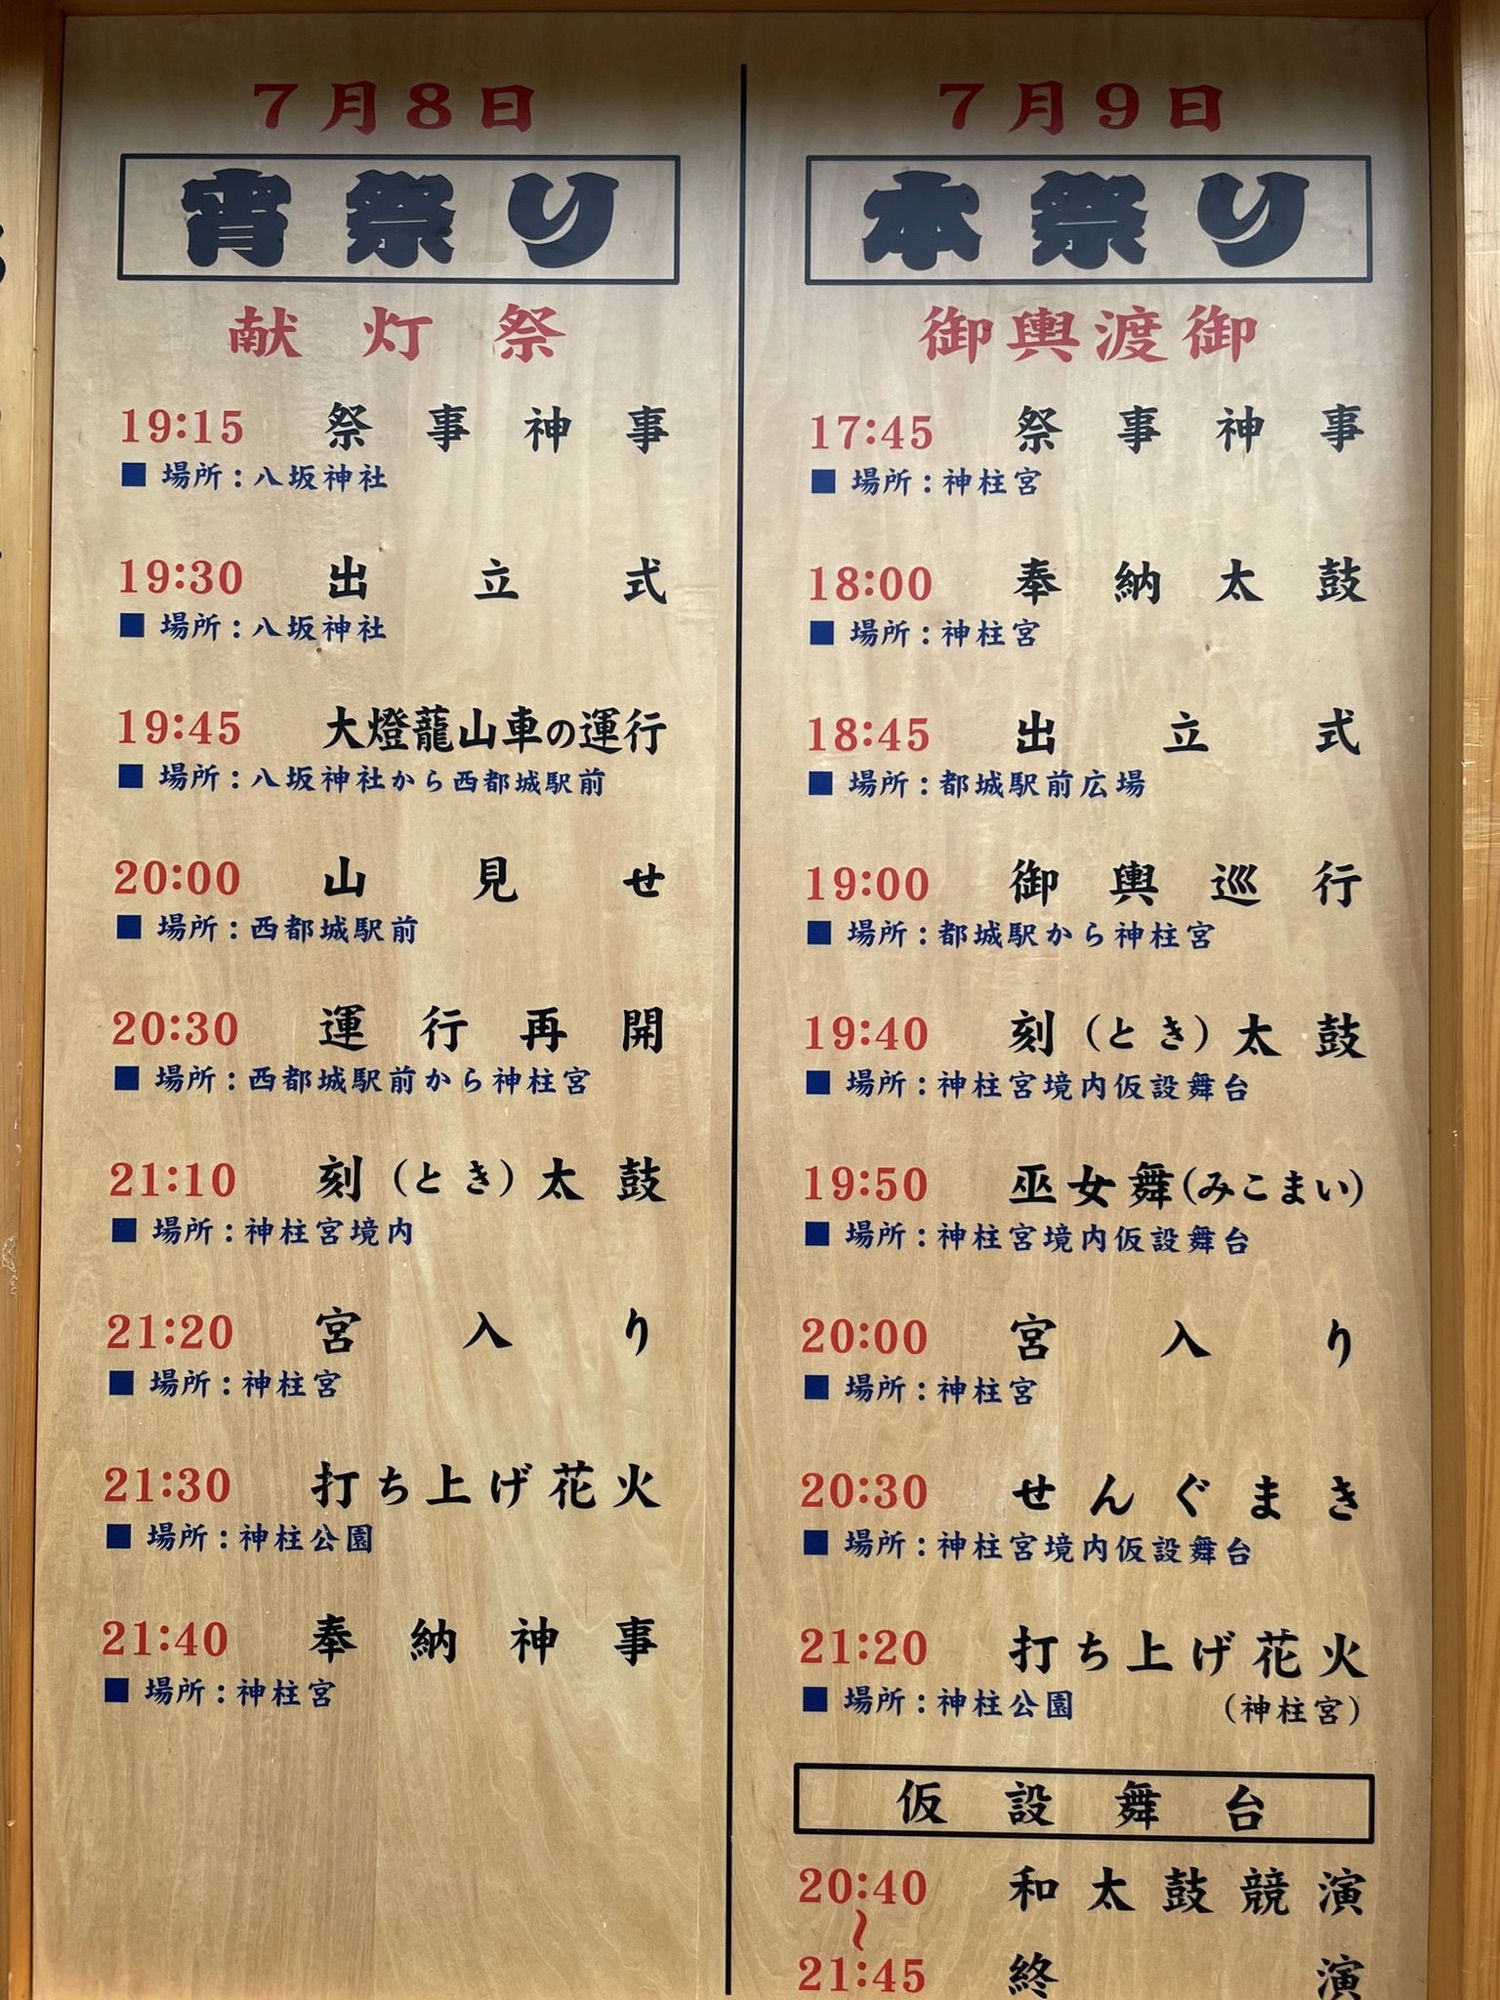 7月8日
宵祭り
献灯祭
19:15 祭事神事
■ 場所：八坂神社
19:30 出立式
■ 場所：八坂神社
19:45 大燈蘢山車の運行
■ 場所：八坂神社から西都城駅前
20:00 山見せ
■ 場所：西都城駅前
20:30 運行再開
■ 場所：西都城駅前から神柱宮
21:10 刻（とき）太鼓
■ 場所：神柱宮境内
21:20 宮入り
■ 場所：神柱宮
21:30 打ち上げ花火
■ 場所：神柱公園
21:40 奉納神事
■ 場所：神柱宮
7月9日
本祭り
御輿渡御
17:45 祭事神事
■ 場所：神柱宮
18:00 奉納太鼓
■ 場所：神柱宮
18:45 出立式
■ 場所：都城駅前広場
19:00 御輿巡行
■ 場所：都城駅から神柱宮
19:40 刻（とき）太鼓
■ 場所：神柱宮境内仮設舞台
19:50 巫女舞（みこまい）
■ 場所：神柱宮境内仮設舞台
20:00 宮入り
■ 場所：神柱宮
20:30 せんぐまき
■ 場所：神柱宮境内仮設舞台
21:20 打ち上げ花火
■ 場所：神柱公園 （神柱宮）
仮設舞台
20:40 和太鼓競演
〜
21:45 終演